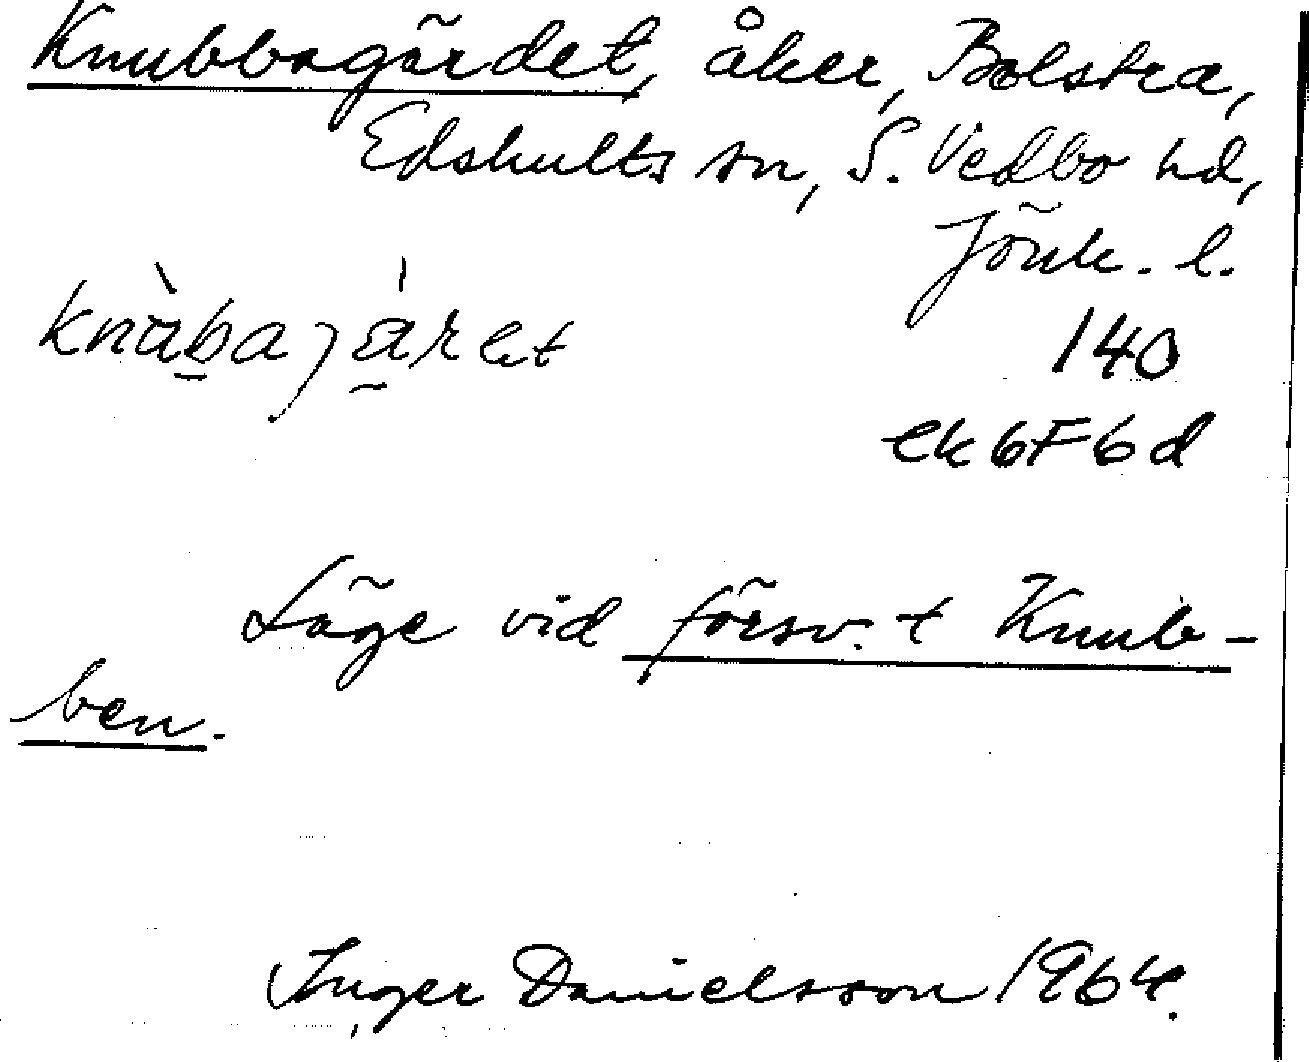 Knubbagärdet, åker, Bolstra,
Edshults sn, S. Vedbo hd,
Jönk. l.
knàbajáret
140
ek 6F6d
Läge vid försv. t Knub-
ben.
Inger Danielsson 1964.